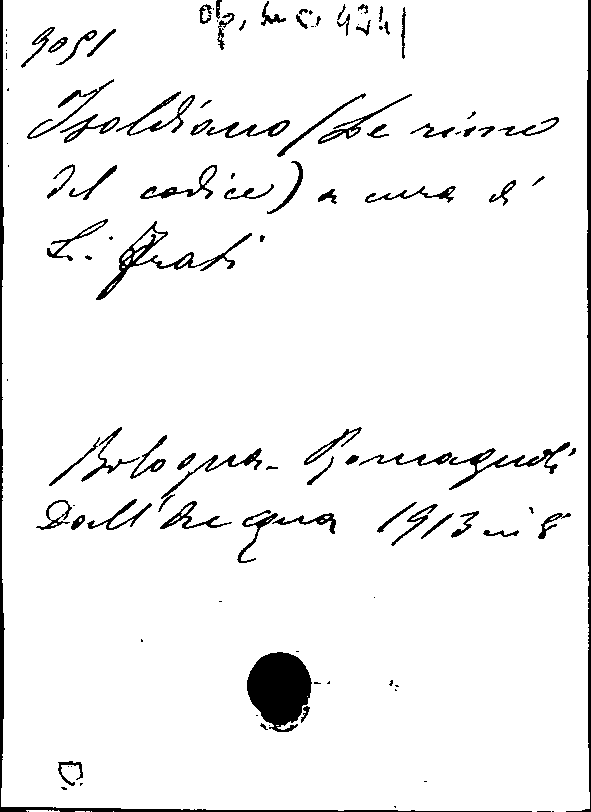 op. m. c. 424
9051
Isoldiano (Le rime
del codice) a cura di
L. Frati
Bologna - Romagnoli
Dall'Acqua 1913 in 8°